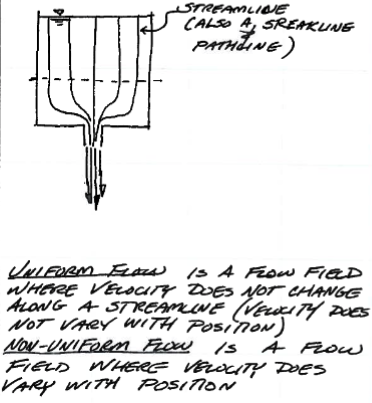 STREAMLINE
(ALSO A, SREAKLINE
PATHLINE)
UNIFORM FLOW IS A FLOW FIELD
WHERE VELOCITY DOES NOT CHANGE
ALONG A STREAMLINE (VELOCITY DOES
NOT VARY WITH POSITION)
NON-UNIFORM FLOW IS A FLOW
FIELD WHERE VELOCITY DOES
VARY WITH POSITION